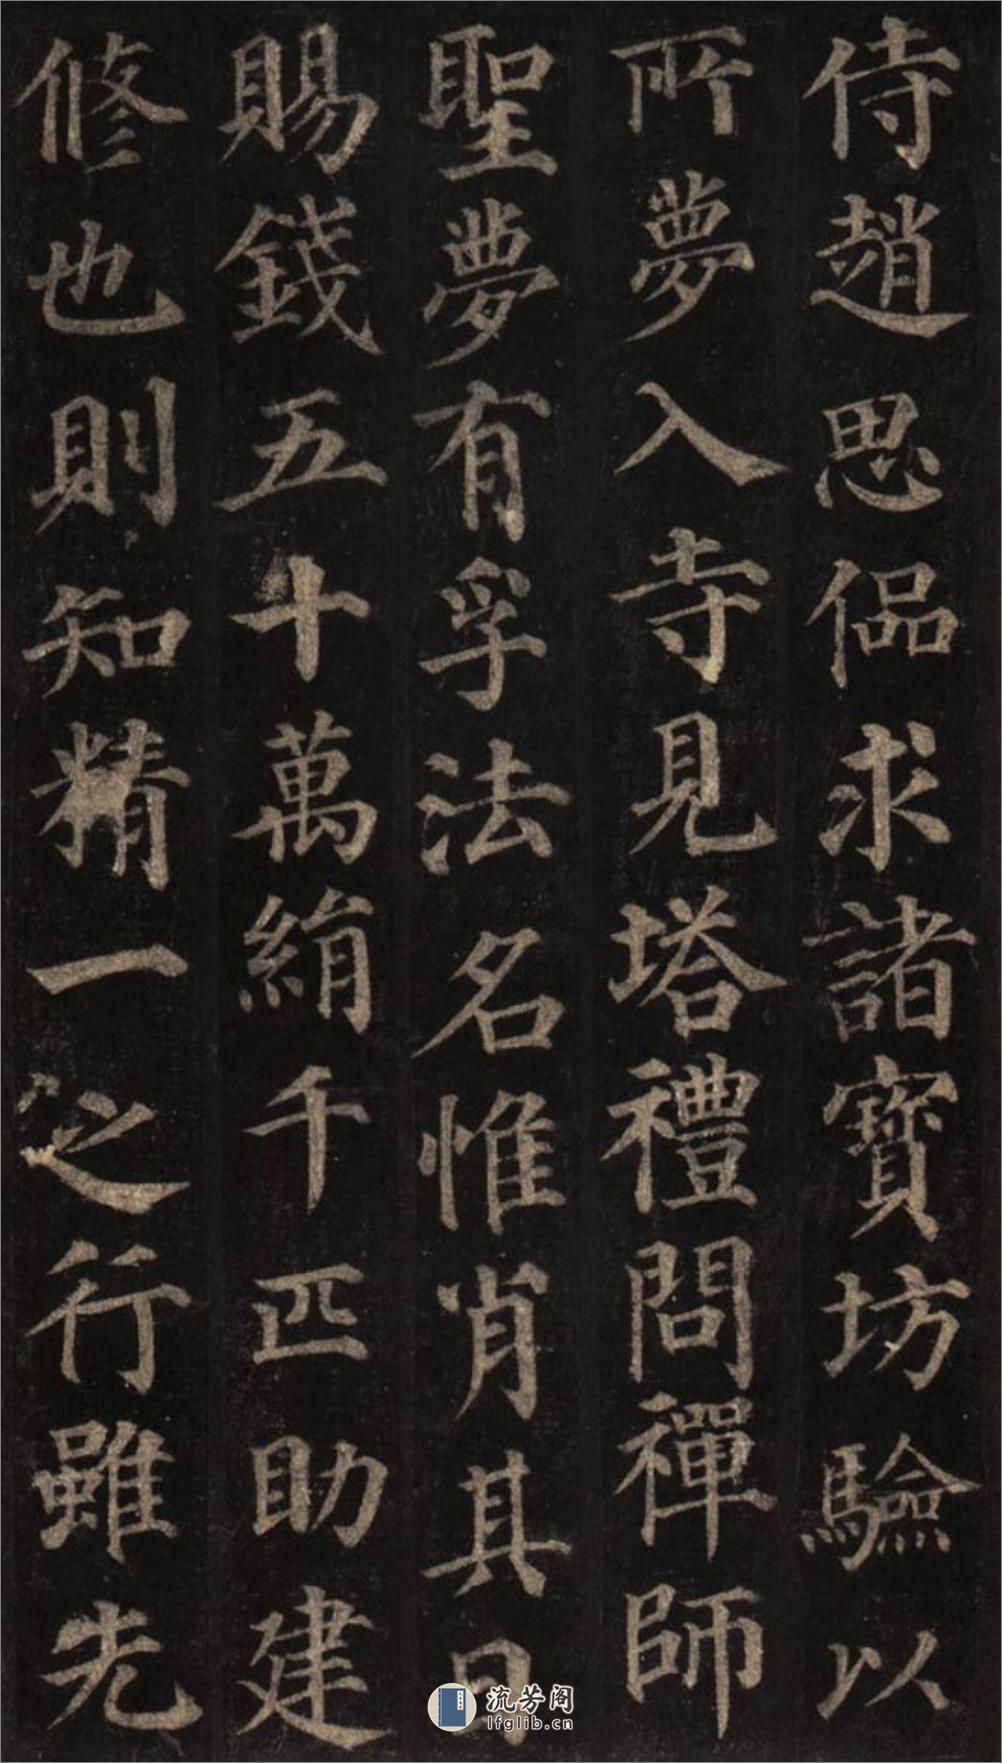 侍趙思侃求諸寶坊驗以
所夢入寺見塔禮問禪師
聖夢有孚法名惟肖其日
賜錢五十萬絹千匹助建
修也則知精一之行雖先
流芳阁
lfglib.cn